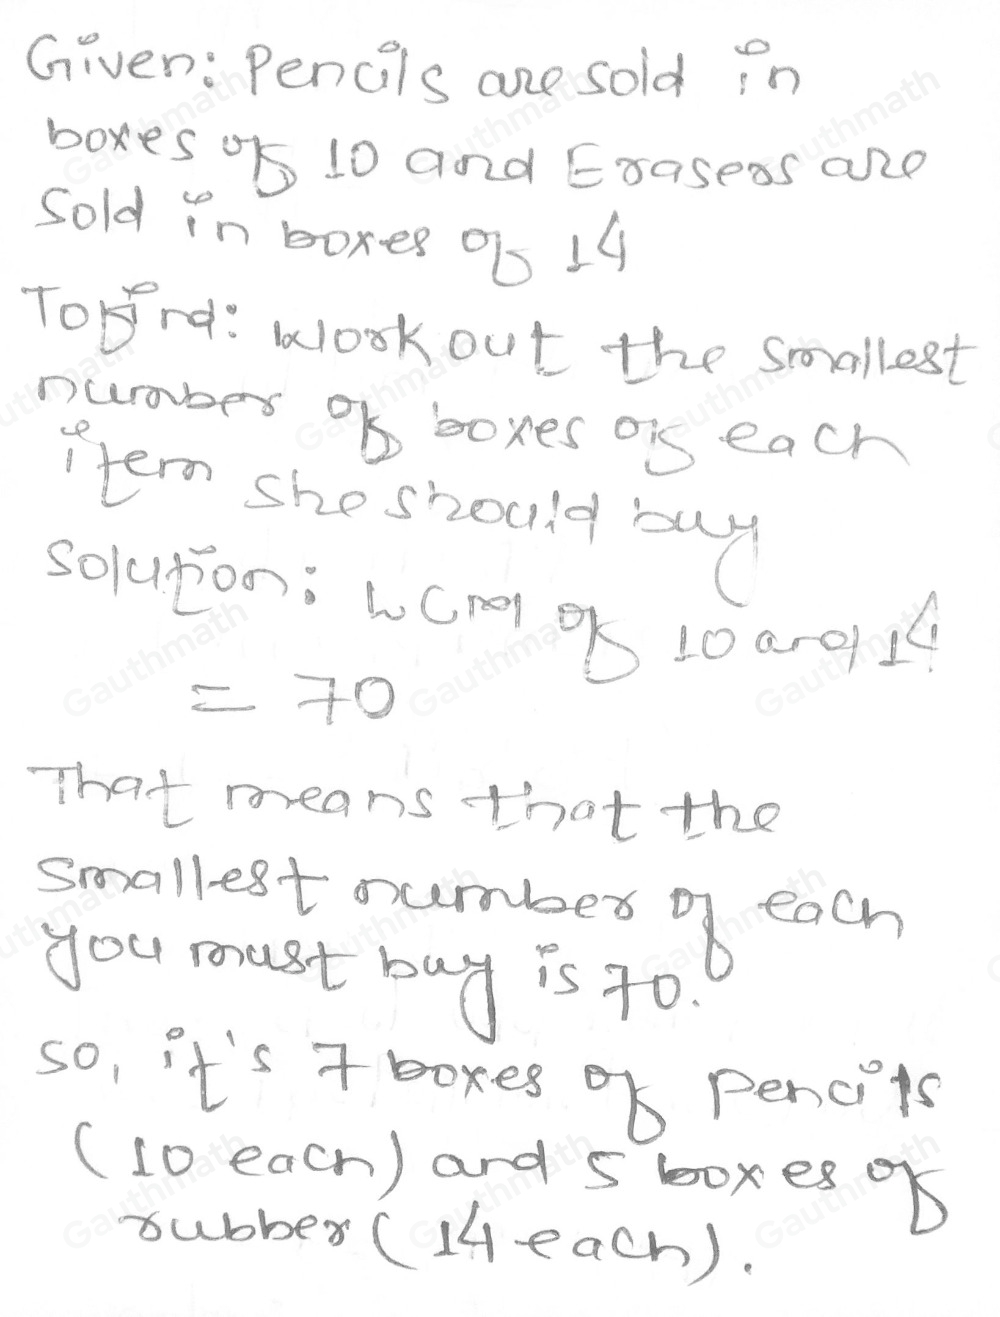 Given: Pencils are sold in
boxes of 10 and Erasers are
Sold in boxes of 14
To find: Work out the smallest
number of boxes of each
item she should buy
Solution: LCM of 10 and 14
= 70
That means that the
smallest number of each
you must buy is 70.
so, it's 7 boxes of pencils
(10 each) and 5 boxes of
rubber (14 each).
Gauthmath